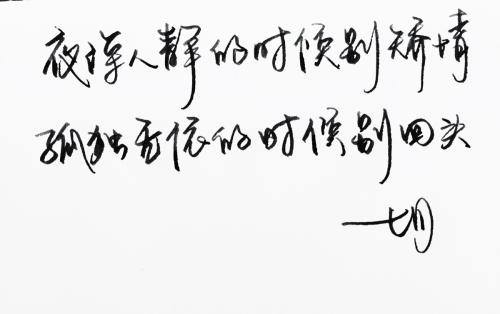 夜深人静的时候别矫情
孤独无依的时候别回头
一七月